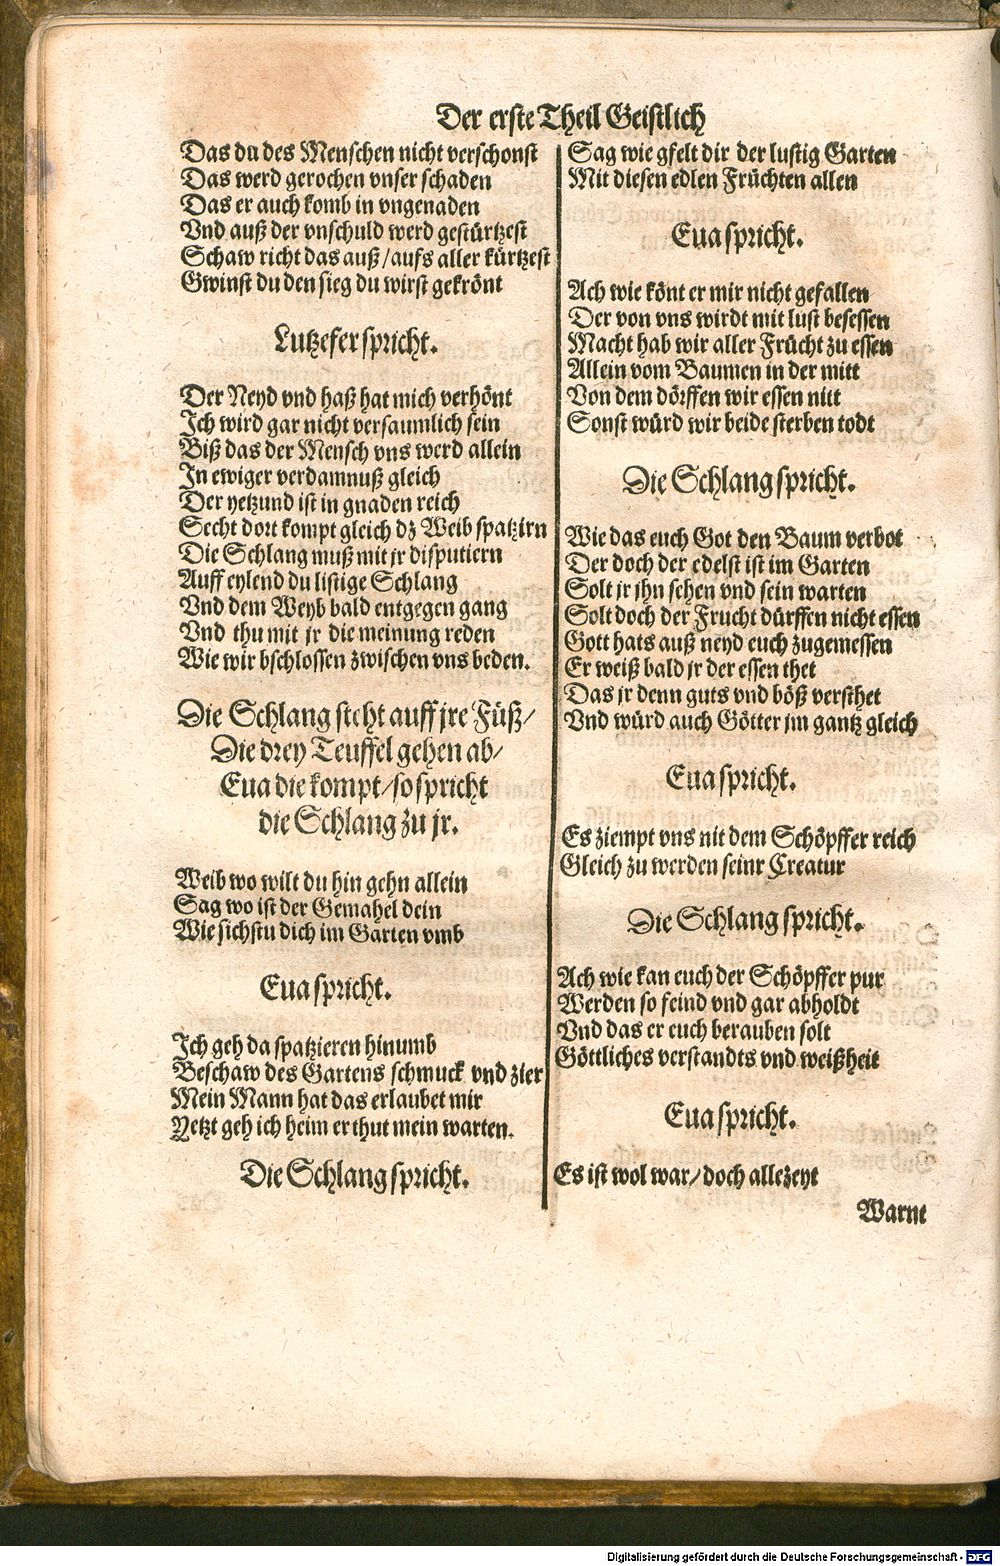 Der erste Theil Geistlich
Das du des Menschen nicht verschonst
Das werd gerochen vnser schaden
Das er auch komb in vngenaden
Vnd auß der vnschuld werd gestürtzest
Schaw richt das auß/aufs aller kürtzest
Gwinst du den sieg du wirst gekrönt
Lutzefer spricht.
Der Neyd vnd haß hat mich verhönt
Ich wird gar nicht versaumlich sein
Biß das der Mensch vns werd allein
In ewiger verdamnuß gleich
Der yetzund ist in gnaden reich
Secht dort kompt gleich dz Weib spatzirn
Die Schlang muß mit jr disputiern
Auff eylend du listige Schlang
Vnd dem Weyb bald entgegen gang
Vnd thu mit jr die meinung reden
Wie wir bschlossen zwischen vns beden.
Die Schlang steht auff jre Füß/
Die drey Teuffel gehen ab/
Eua die kompt/so spricht
die Schlang zu jr.
Weib wo wilt du hin gehn allein
Sag wo ist der Gemahel dein
Wie sichstu dich im Garten vmb
Eua spricht.
Ich geh da spatzieren hinumb
Beschaw des Gartens schmuck vnd zier
Mein Mann hat das erlaubet mir
Yetzt geh ich heim er thut mein warten.
Die Schlang spricht.
Sag wie gfelt dir der lustig Garten
Mit diesen edlen Früchten allen
Eua spricht.
Ach wie könt er mir nicht gefallen
Der von vns wirdt mit lust besessen
Macht hab wir aller Frücht zu essen
Allein vom Baumen in der mitt
Von dem dörffen wir essen nitt
Sonst würd wir beide sterben todt
Die Schlang spricht.
Wie das euch Got den Baum verbot
Der doch der edelst ist im Garten
Solt jr jhn sehen vnd sein warten
Solt doch der Frucht dürffen nicht essen
Gott hats auß neyd euch zugemessen
Er weiß bald jr der essen thet
Das jr denn guts vnd böß versthet
Vnd würd auch Götter jm gantz gleich
Eua spricht.
Es ziempt vns nit dem Schöpffer reich
Gleich zu werden seinr Creatur
Die Schlang spricht.
Ach wie kan euch der Schöpffer pur
Werden so feind vnd gar abholdt
Vnd das er euch berauben solt
Göttliches verstandts vnd weißheit
Eua spricht.
Es ist wol war/doch allezeyt
Warnt
Digitalisierung gefördert durch die Deutsche Forschungsgemeinschaft - DFG